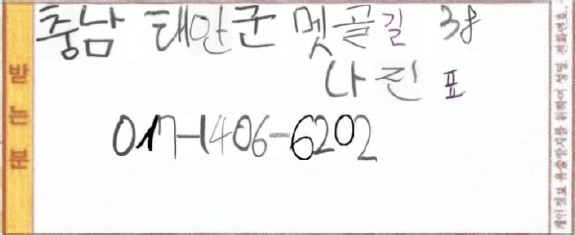 충남 태안군 멧골길 38
나린표
017-1406-6202
받는분
개인정보 유출방지를 위하여 성명, 전화번호,